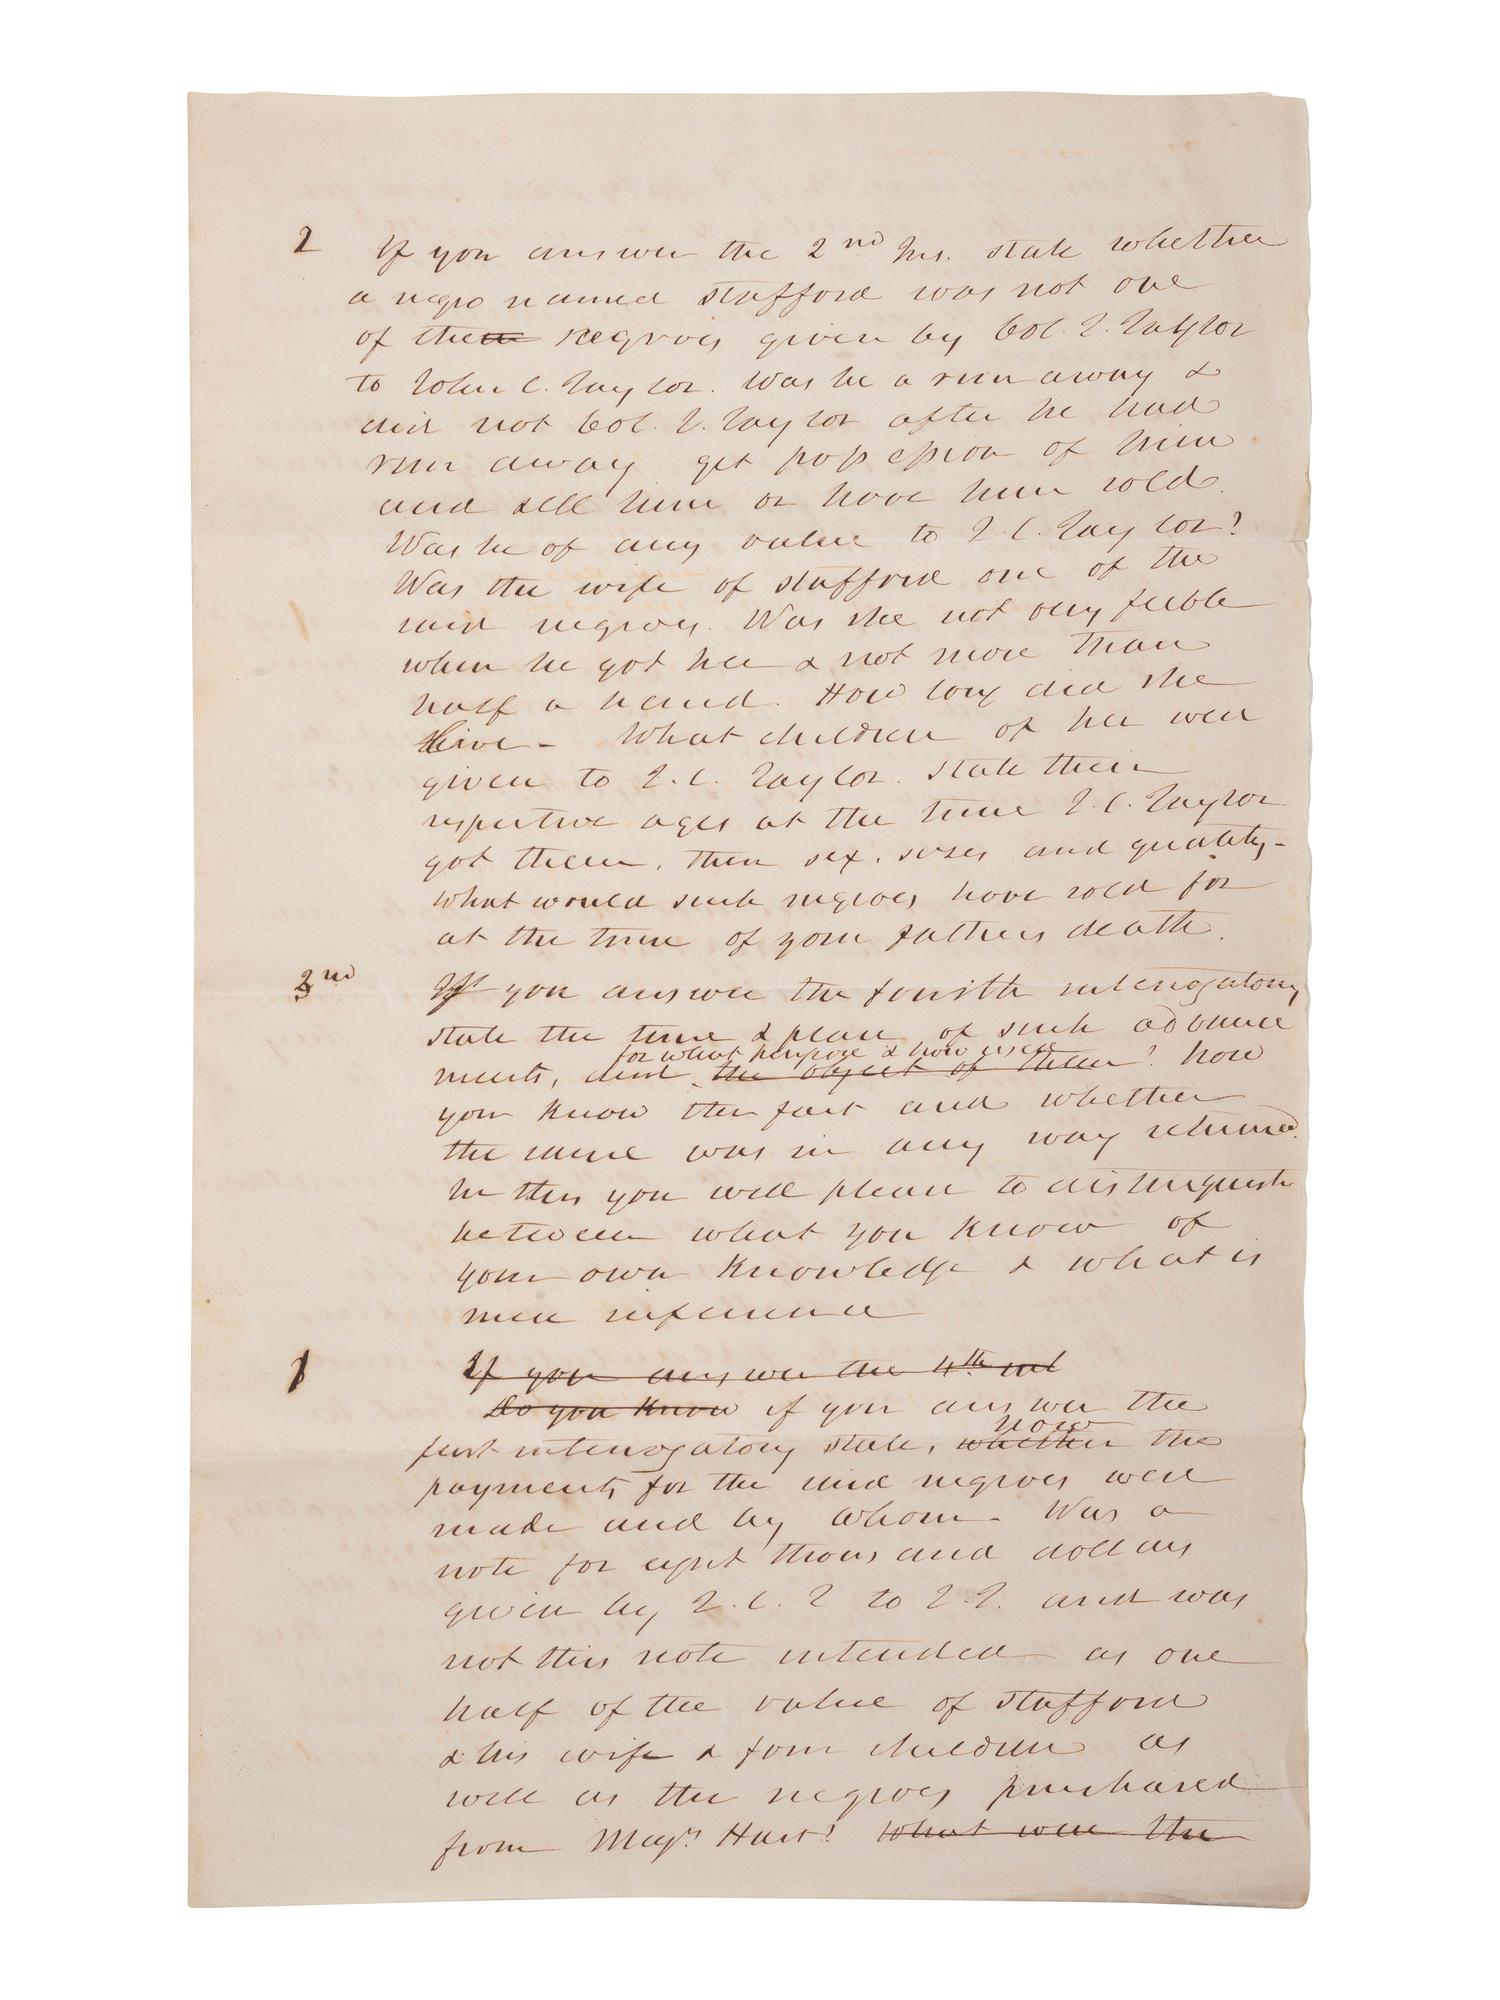 2 If you answer the 2nd Ins. state whether
a negro named Stafford was not one
of the negroes given by Col. J. Taylor
to John C. Taylor. Was he a run away &
did not Col. J. Taylor after he had
run away get possession of him
and sell him or have him sold.
Was he of any value to J. C. Taylor?
Was the wife of Stafford one of the
said negroes. Was she not very feeble
when he got her & not more than
half a hand. How long did she
live - What children of her were
given to J. C. Taylor. State their
respective ages at the time J. C. Taylor
got them, their sex, sizes and quality -
What would such negroes have sold for
at the time of your fathers death.
3nd If you answer the fourth interrogatory
state the time & place of such advance
for what purpose & how used
ments, and the object of them? how
you know the fact and whether
the same was in any way returned.
In this you will please to distinguish
between what you know of
your own knowledge & what is
mere inference
1 If you answer the 4th int
Do you know if you answer the
how
first interrogatory state, whether the
payments for the said negroes were
made and by whom - Was a
note for eight thousand dollars
given by J. C. T to J. T. and was
not this note intended as one
half of the value of Stafford
& his wife & four children as
well as the negroes purchased
from Majr. Hart? What were the